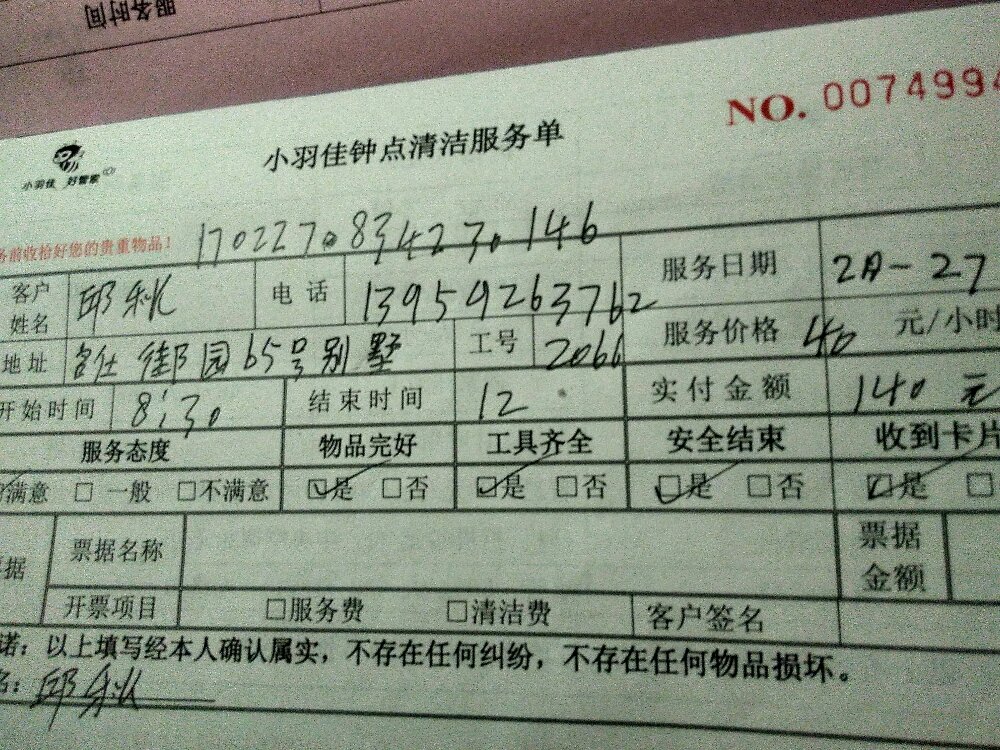 服务时间
NO. 0074994
小羽佳 好管家
小羽佳钟点清洁服务单
务前收拾好您的贵重物品!
170227.83423.146
客户姓名 邱秋 电话 13959263762 服务日期 2月-27
地址 御园65号别墅 工号 2066 服务价格 40 元/小时
开始时间 8:30 结束时间 12 实付金额 140 元
服务态度 物品完好 工具齐全 安全结束 收到卡片
满意 □ 一般 □不满意 ☑是 □否 ☑是 □否 ☑是 □否 ☑是 □
据 票据名称 票据金额
开票项目 □服务费 □清洁费 客户签名
诺:以上填写经本人确认属实,不存在任何纠纷,不存在任何物品损坏。
名:邱秋